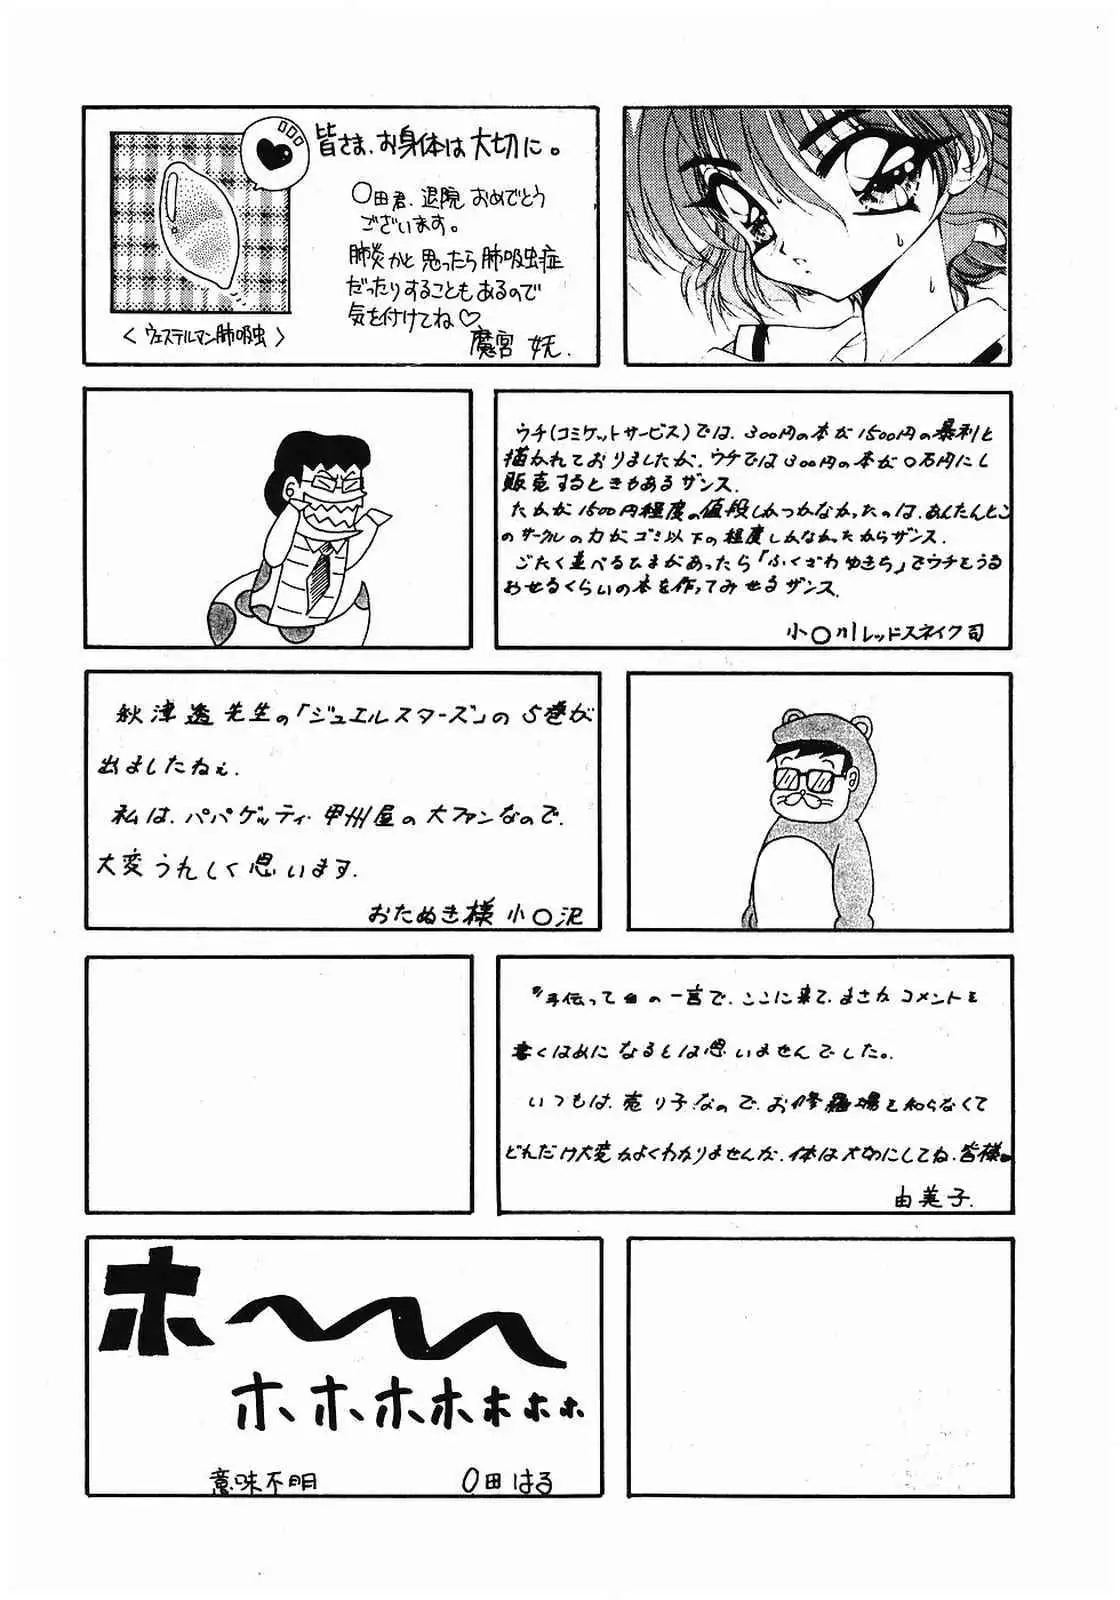 皆さま、お身体は大切に。
〇田君、退院おめでとう
ございます。
肺炎かと思ったら肺吸虫症
だったりすることもあるので
気を付けてね♡
魔宮 妖.
〈ウェステルマン肺吸虫〉
ウチ(コミケットサービス)では、300円の本が1500円の暴利と
描かれておりましたが、ウチでは300円の本が〇万円にし
販売するときもあるザンス.
たかが1500円程度の値段しかつかなかったのは、あんたんとこ
のサークルの力がゴミ以下の程度しかなかったからザンス.
ごたく並べるひまがあったら「ふくざわゆきち」でウチをうる
おせるくらいの本を作ってみせるザンス.
小〇川レッドスネイク司
秋津透先生の「ジュエルスターズ」の5巻が
出ましたねぇ.
私は、パパゲッティ・甲州屋の大ファンなので、
大変うれしく思います.
おたぬき様 小〇沢
手伝って の一言で、ここに来て、まさかコメントを
書くはめになるとは思いませんでした。
いつもは、売り子なので、お修羅場を知らなくて
どれだけ大変かよくわかりませんが、体は大切にしてね、皆様。
由美子.
ホ〜
ホホホホホホホ
意味不明 〇田はる